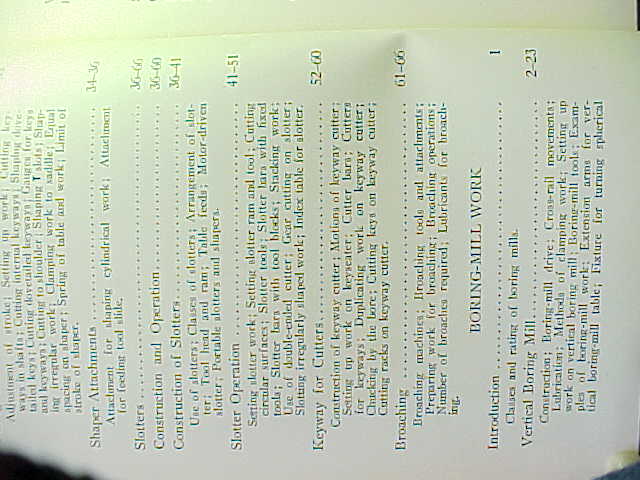 Adjustment of stroke; Setting up work; Cutting key-
ways in shafts; Cutting internal keyways; Shaping dove-
tailed keys; Cutting dovetailed keyways; Gauges for keys
and keyways; Cutting to shoulder; Shaping T slots; Shap-
ing irregular work; Clamping work to saddle; Equal
spacing on shaper; Spring of table and work; Limit of
stroke of shaper.
Shaper Attachments 34-36
Attachment for shaping cylindrical work; Attachment
for feeding tool slide.
Slotters 36-66
Construction and Operation 36-60
Construction of Slotters 36-41
Use of slotters; Classes of slotters; Arrangement of slot-
ter; Tool head and ram; Table feeds; Motor-driven
slotter; Portable slotters and shapers.
Slotter Operation 41-51
Setting slotter work; Setting slotter ram and tool; Cutting
circular surfaces; Slotter tools; Slotter bars with fixed
tools; Slotter bars with tool blocks; Stacking work;
Use of double-ended cutter; Gear cutting on slotter;
Slotting irregularly shaped work; Index table for slotter.
Keyway for Cutters 52-60
Construction of keyway cutter; Motions of keyway cutter;
Setting up work on keyseater; Cutter bars; Cutters
for keyways; Duplicating work on keyway cutter;
Chucking by the bore; Cutting keys on keyway cutter;
Cutting racks on keyway cutter.
Broaching 61-66
Broaching machines; Broaching tools and attachments;
Preparing work for broaching; Broaching operations;
Number of broaches required; Lubricants for broach-
ing.
BORING-MILL WORK
Introduction 1
Classes and rating of boring mills.
Vertical Boring Mill 2-23
Construction; Boring-mill drive; Cross-rail movements;
Lubrication; Methods of clamping work; Setting up
work on vertical boring mill; Boring-mill tools; Exam-
ples of boring-mill work; Extension arms for ver-
tical boring-mill table; Fixture for turning spherical